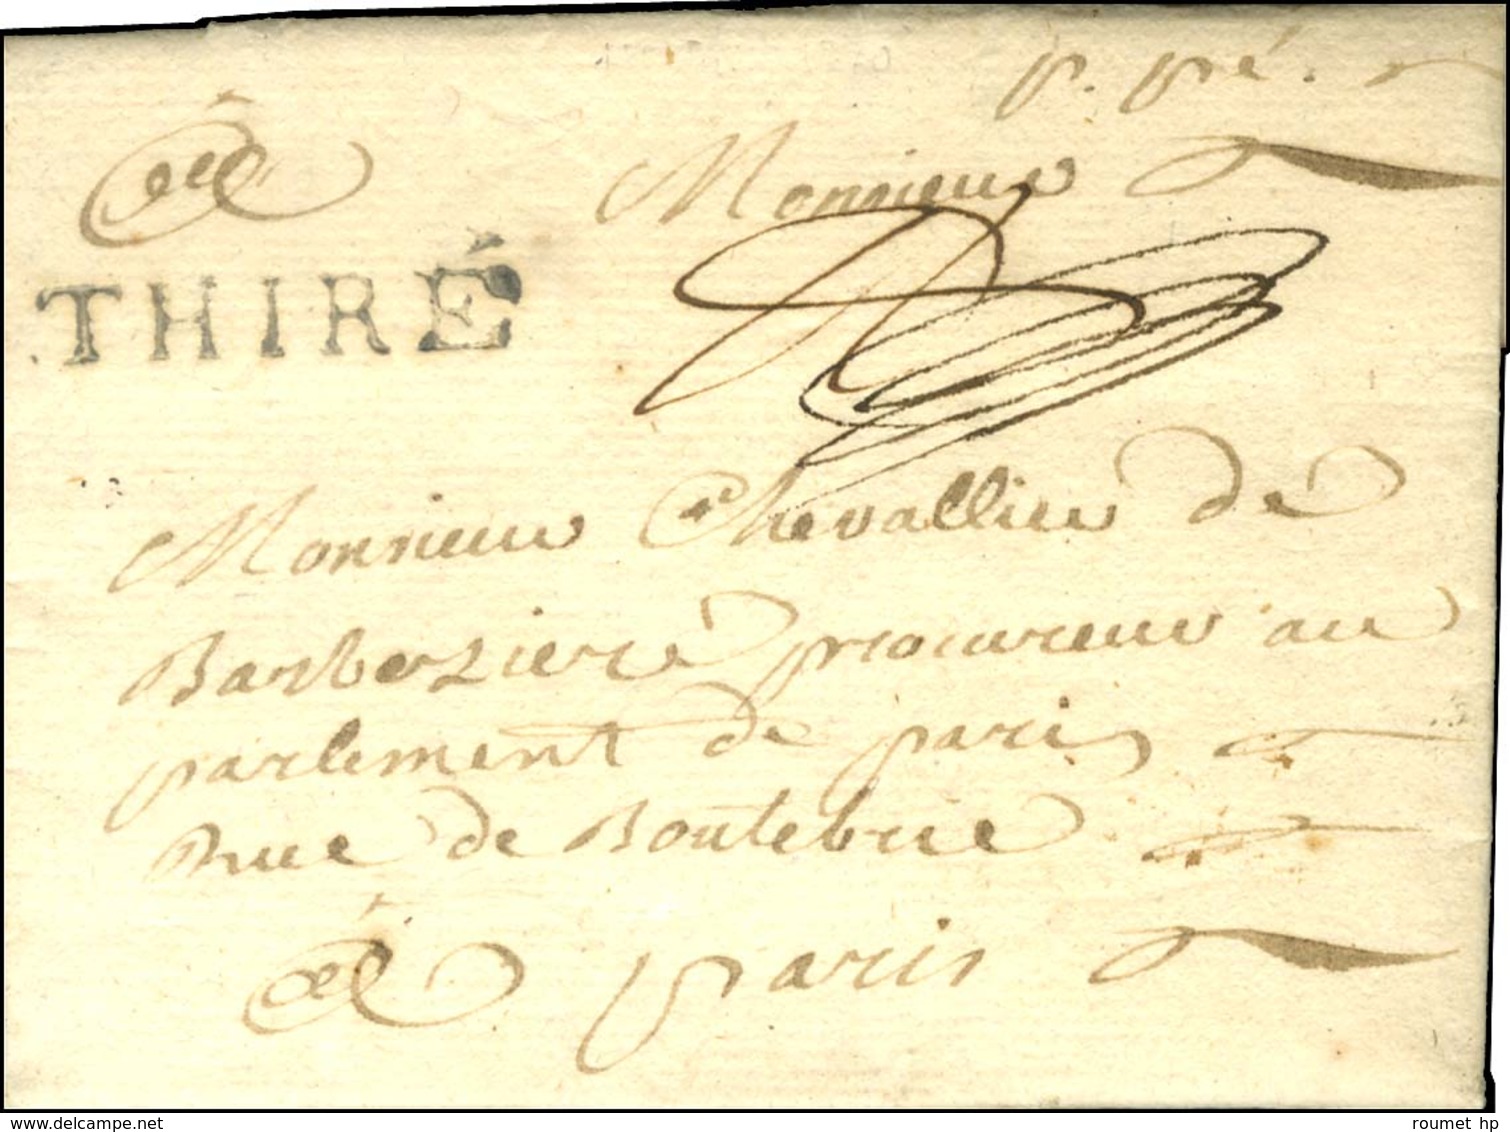 p. pré.
A Monsieur
THIRÉ
Monsieur Chevallier de
Barbezière procureur au
parlement de paris
Rue de Boutebrie
A paris
delcampe.net
roumet hp